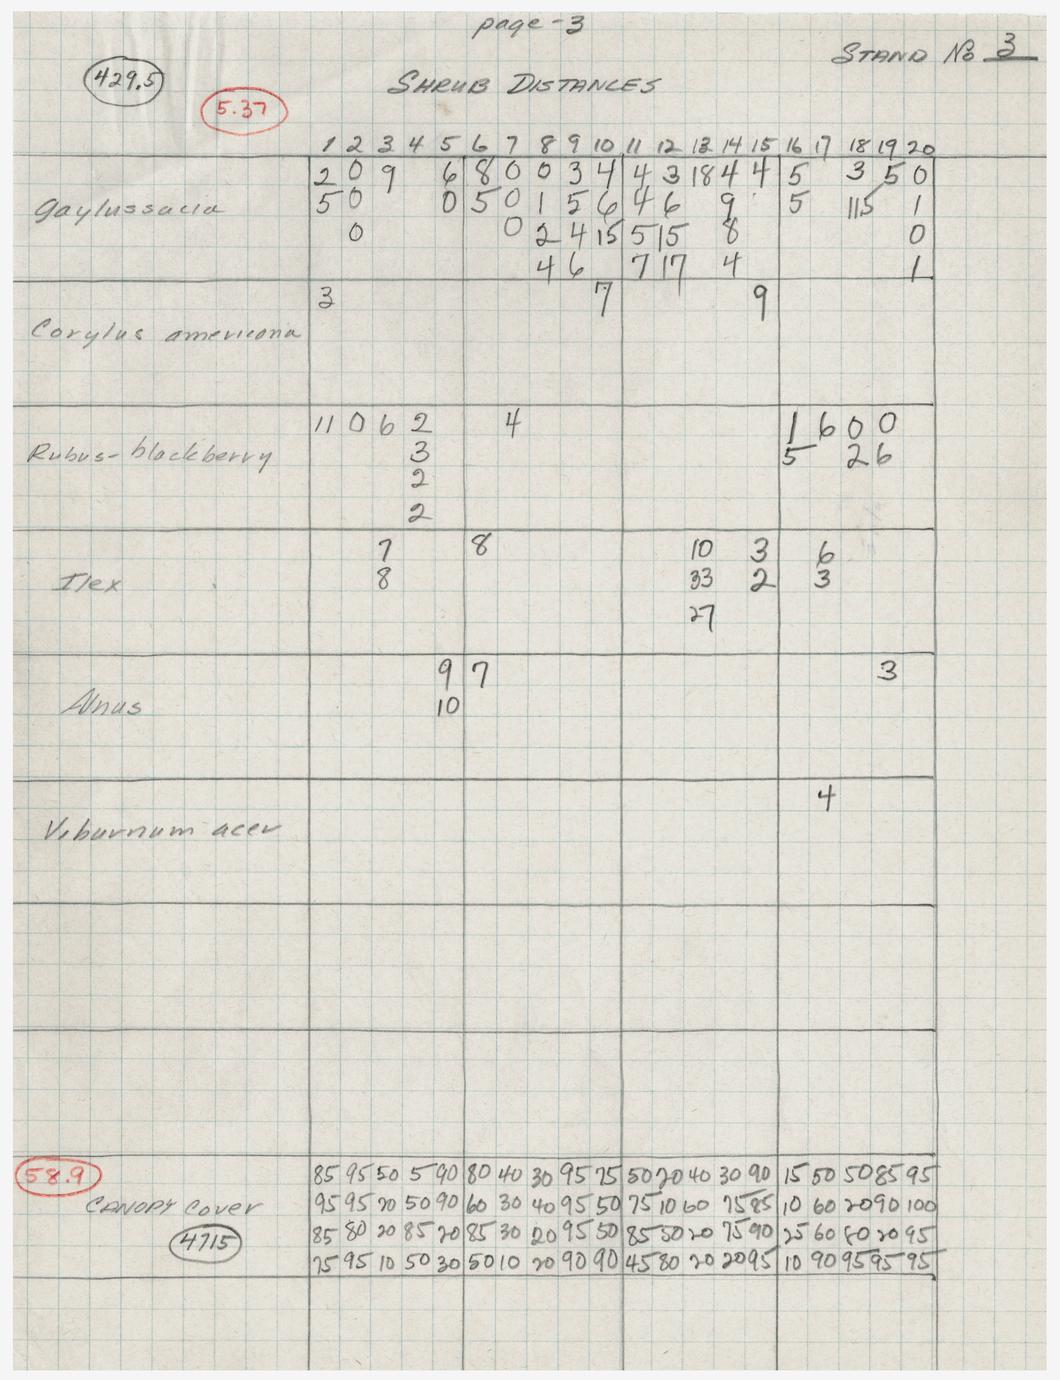 page - 3
STAND No 3
429.5
SHRUB DISTANCES
5.37
1 2 3 4 5 6 7 8 9 10 11 12 13 14 15 16 17 18 19 20
2 0 9 6 8 0 0 3 4 4 3 18 4 4 5 3 5 0
Gaylussacia 5 0 0 5 0 1 5 6 4 6 9 5 115 1
0 0 2 4 15 5 15 8 0
4 6 7 17 4 1
3 7 9
Corylus americana
11 0 6 2 4 1 6 0 0
Rubus-blackberry 3 5 2 6
2
2
7 8 10 3 6
Ilex 8 33 2 3
27
9 7 3
Alnus 10
4
Viburnum acer
58.9 85 95 50 5 90 80 40 30 95 75 50 20 40 30 90 15 50 50 85 95
CANOPY Cover 95 95 20 50 90 60 30 40 95 50 75 10 60 75 85 10 60 20 90 100
4715 85 80 20 85 20 85 30 20 95 50 85 50 20 75 90 25 60 80 20 95
75 95 10 50 30 50 10 20 90 90 45 80 20 20 95 10 90 95 95 95